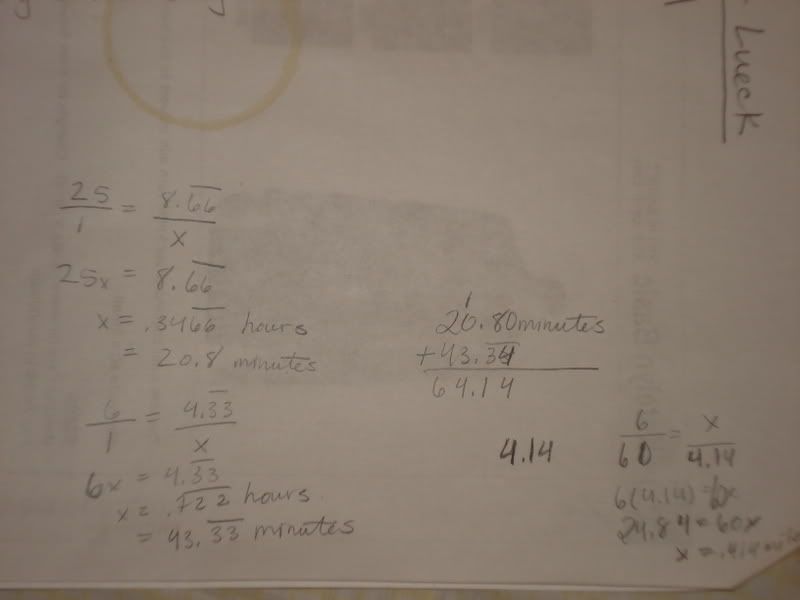 Lueck
25/1 = 8.6̅6̅/x
25x = 8.6̅6̅
x = .346̅6̅ hours
= 20.8 minutes
6/1 = 4.3̅3̅/x
6x = 4.3̅3̅
x = .7̅2̅2̅ hours
= 43.3̅3̅ minutes
20.80 minutes
+ 43.34
64.14
4.14
6/60 = x/4.14
6(4.14) = 60x
24.84 = 60x
x = .414